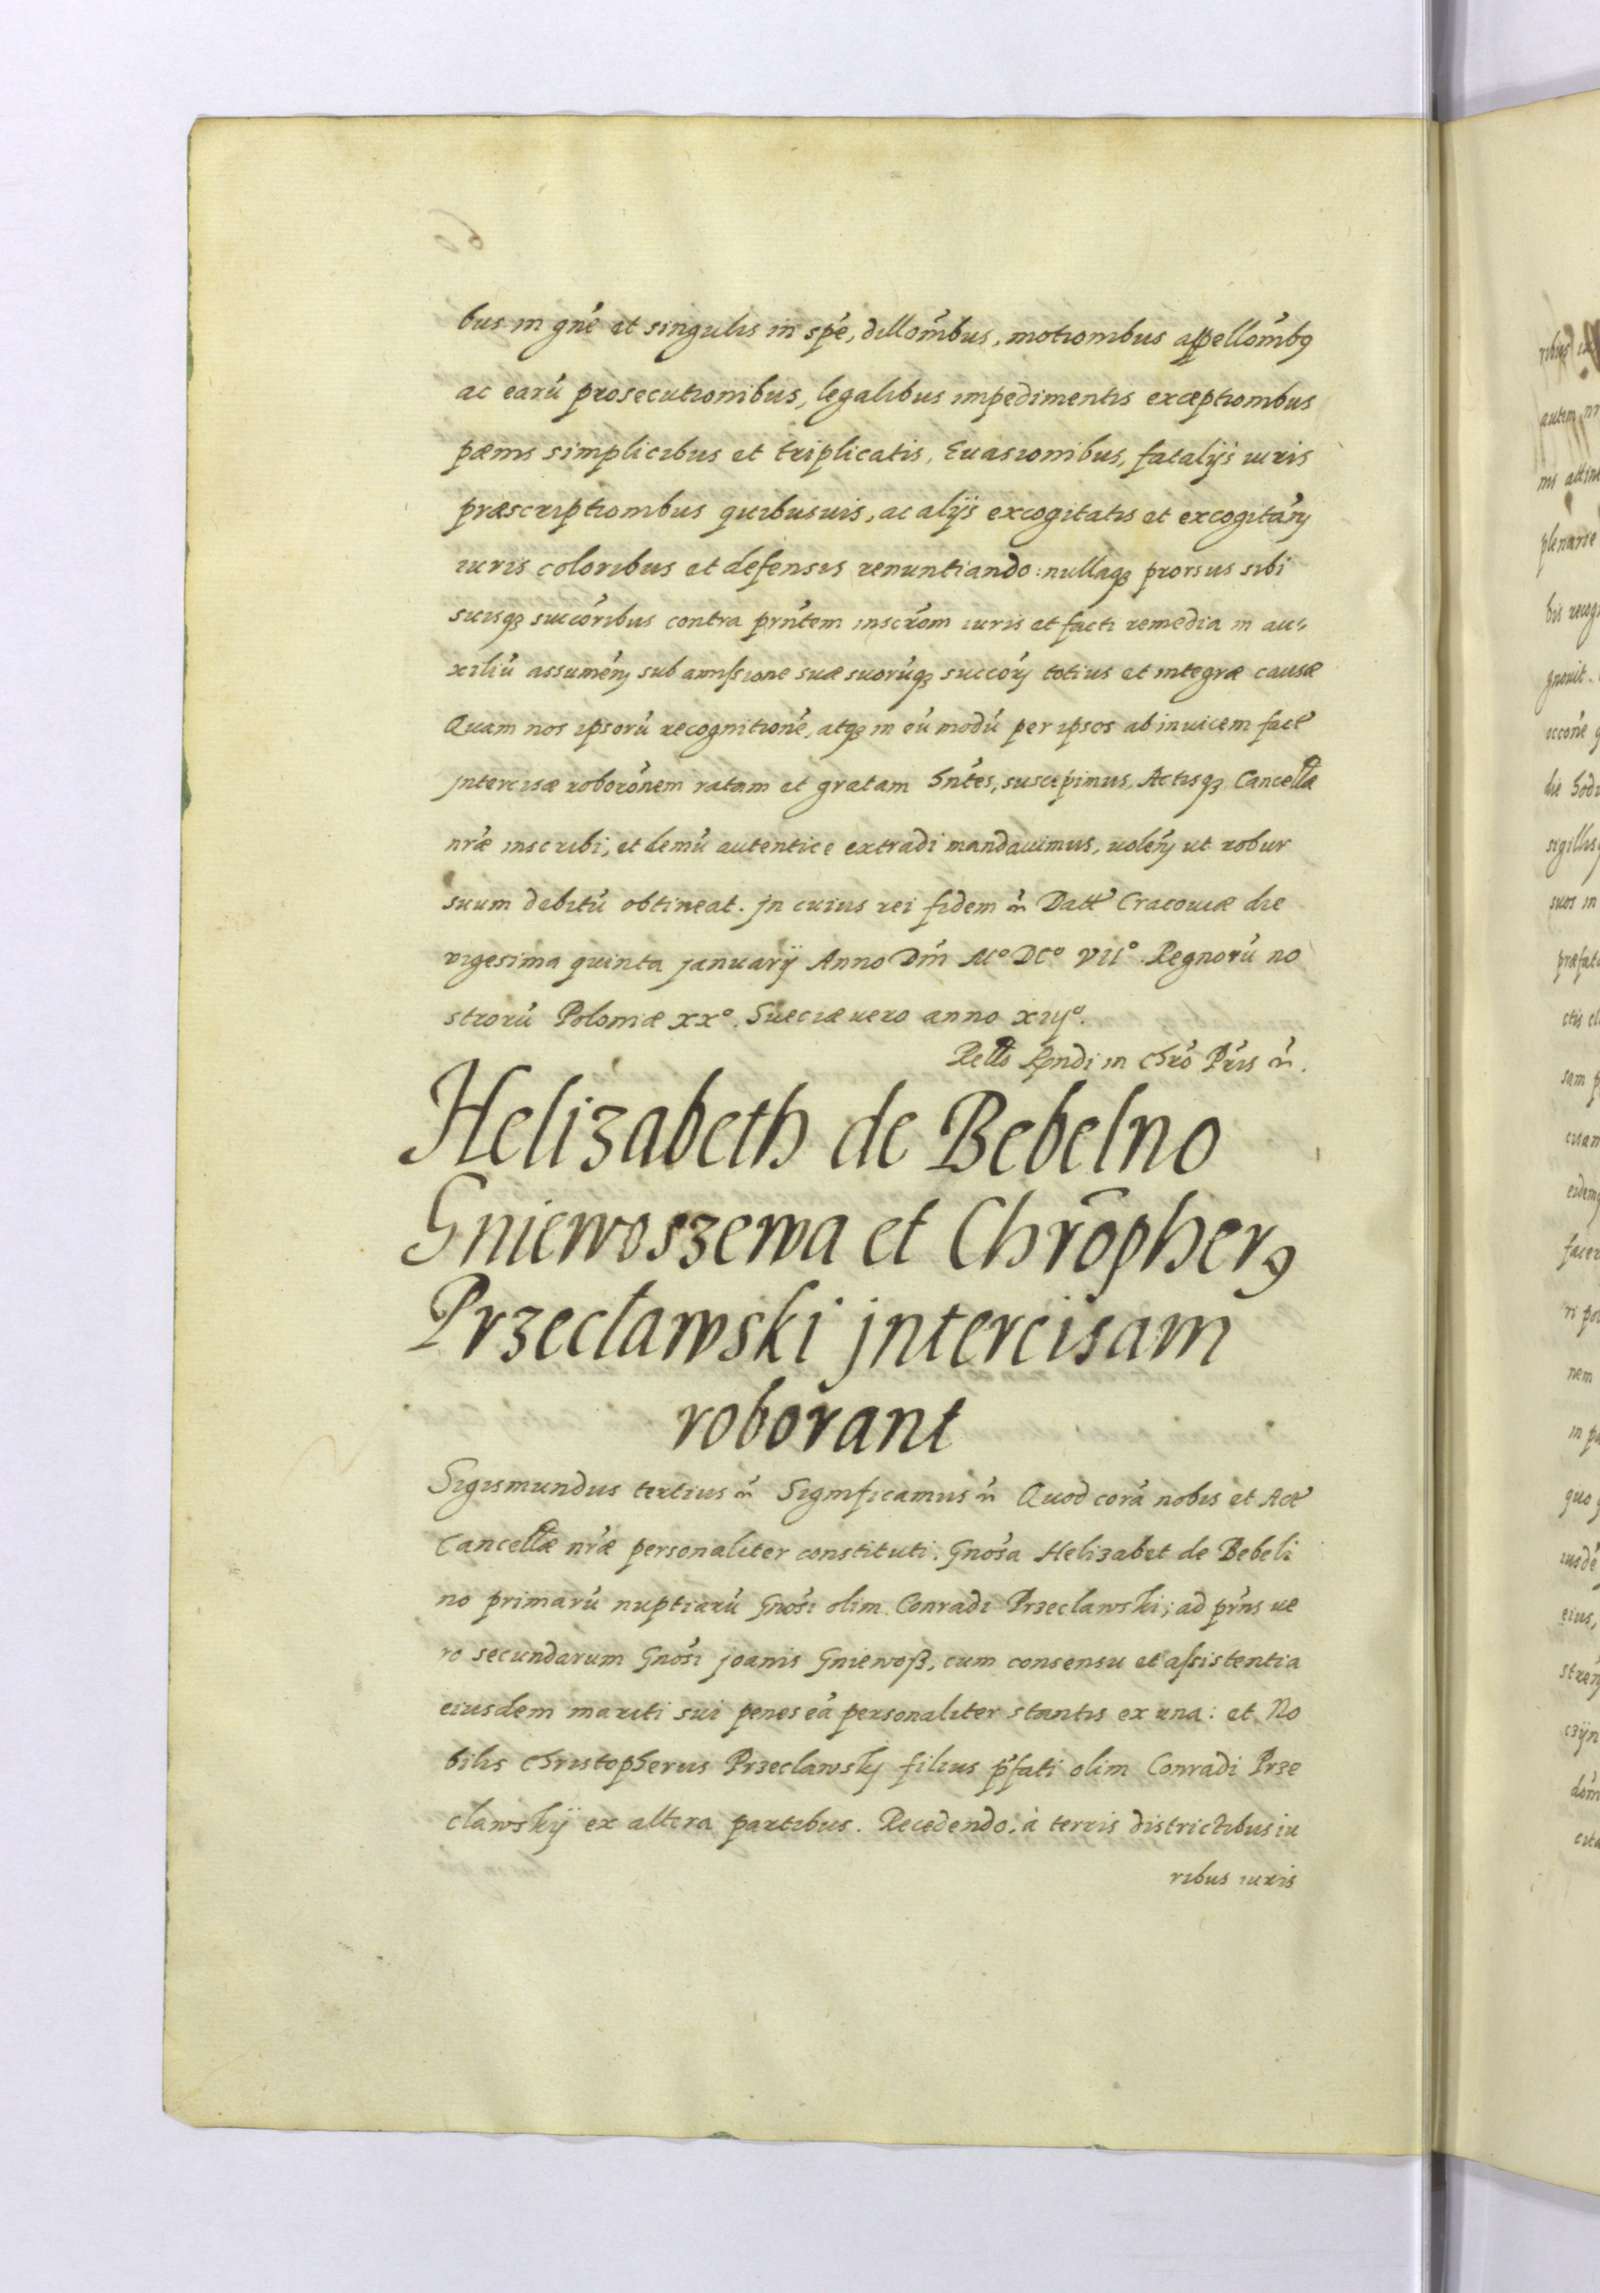 bus in gn̄e et singulis in sp̄e, dillom̄bus, motionibus appellom̄bꝫ
ac earū prosecutionibus, legalibus impedimentis exceptionibus
pænis simplicibus et triplicatis, Evasionibus, fatalijs iuris
præscriptionibus quibusuis, ac alijs excogitatis et excogitan̄
iuris coloribus et defensis renuntiando: nullaqꝫ prorsus sibi
suisqꝫ succōribus contra prn̄tem inscrōm iuris et facti remedia in au-
xiliū assumēn sub amissione suæ suorūqꝫ succōrꝫ totius et integræ causæ
Quam nos ipsorū recognitionē, atqꝫ in eū modū per ipsos ab inuicem fact
jntercisæ roborōnem ratam et gratam hn̄tes, suscepimus, Actisqꝫ Cancellæ
nr̄æ inscribi, et demū autentice extradi mandauimus, volēn ut robur
suum debitū obtineat. jn cuius rei fidem Datt Cracouiæ die
vigesima quinta januarij Anno Dn̄i Mº DCº VIIº. Regnorū no
strorū Poloniæ XXº. Sueciæ vero anno xiijº.
Rello Rn̄di in Chrō Pr̄is
Helizabeth de Bebelno
Gniewoszewa et Chrōpherꝫ
Przecławski jntercisam
roborant
Sigismundus tertius Significamus Quod corā nobis et Act
Cancellæ nr̄æ personaliter constituti. Gnōsa Helizabet de Bebeli
no primarū nuptiarū Gnōsi olim Conradi Przeclawski; ad prn̄s ve
ro secundarum Gnōsi joanis Gniewoß, cum consensu et assistentia
eiusdem mariti sui penes eā personaliter stantis ex una: et No
bilis Christopherus Przeclawsky filius pfati olim Conradi Prze
clawskÿ ex altera partibus. Recedendo, à terris districtibus iu
ribus iuris